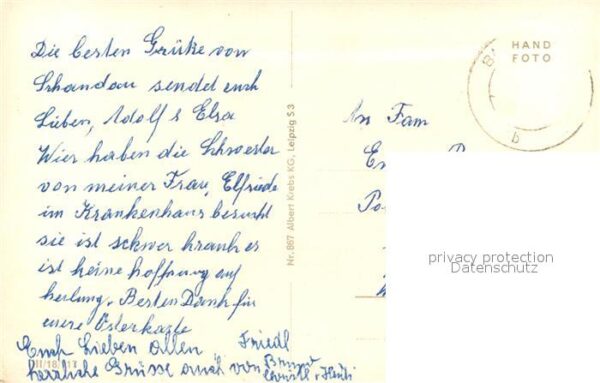 Die besten Grüße von
Schandau sendet euch
Lieben, Adolf & Elsa
Wier haben die Schwester
von meiner Frau, Elfriede
im Krankenhaus besucht
sie ist schwer krank es
ist keine hoffnung auf
heilung. Besten Dank für
eure Osterkarte
Euch Lieben allen Friedl
herzliche Grüsse auch von
Nr. 867 Albert Krebs KG, Leipzig S 3
HAND
FOTO
B
b
An Fam
privacy protection
Datenschutz